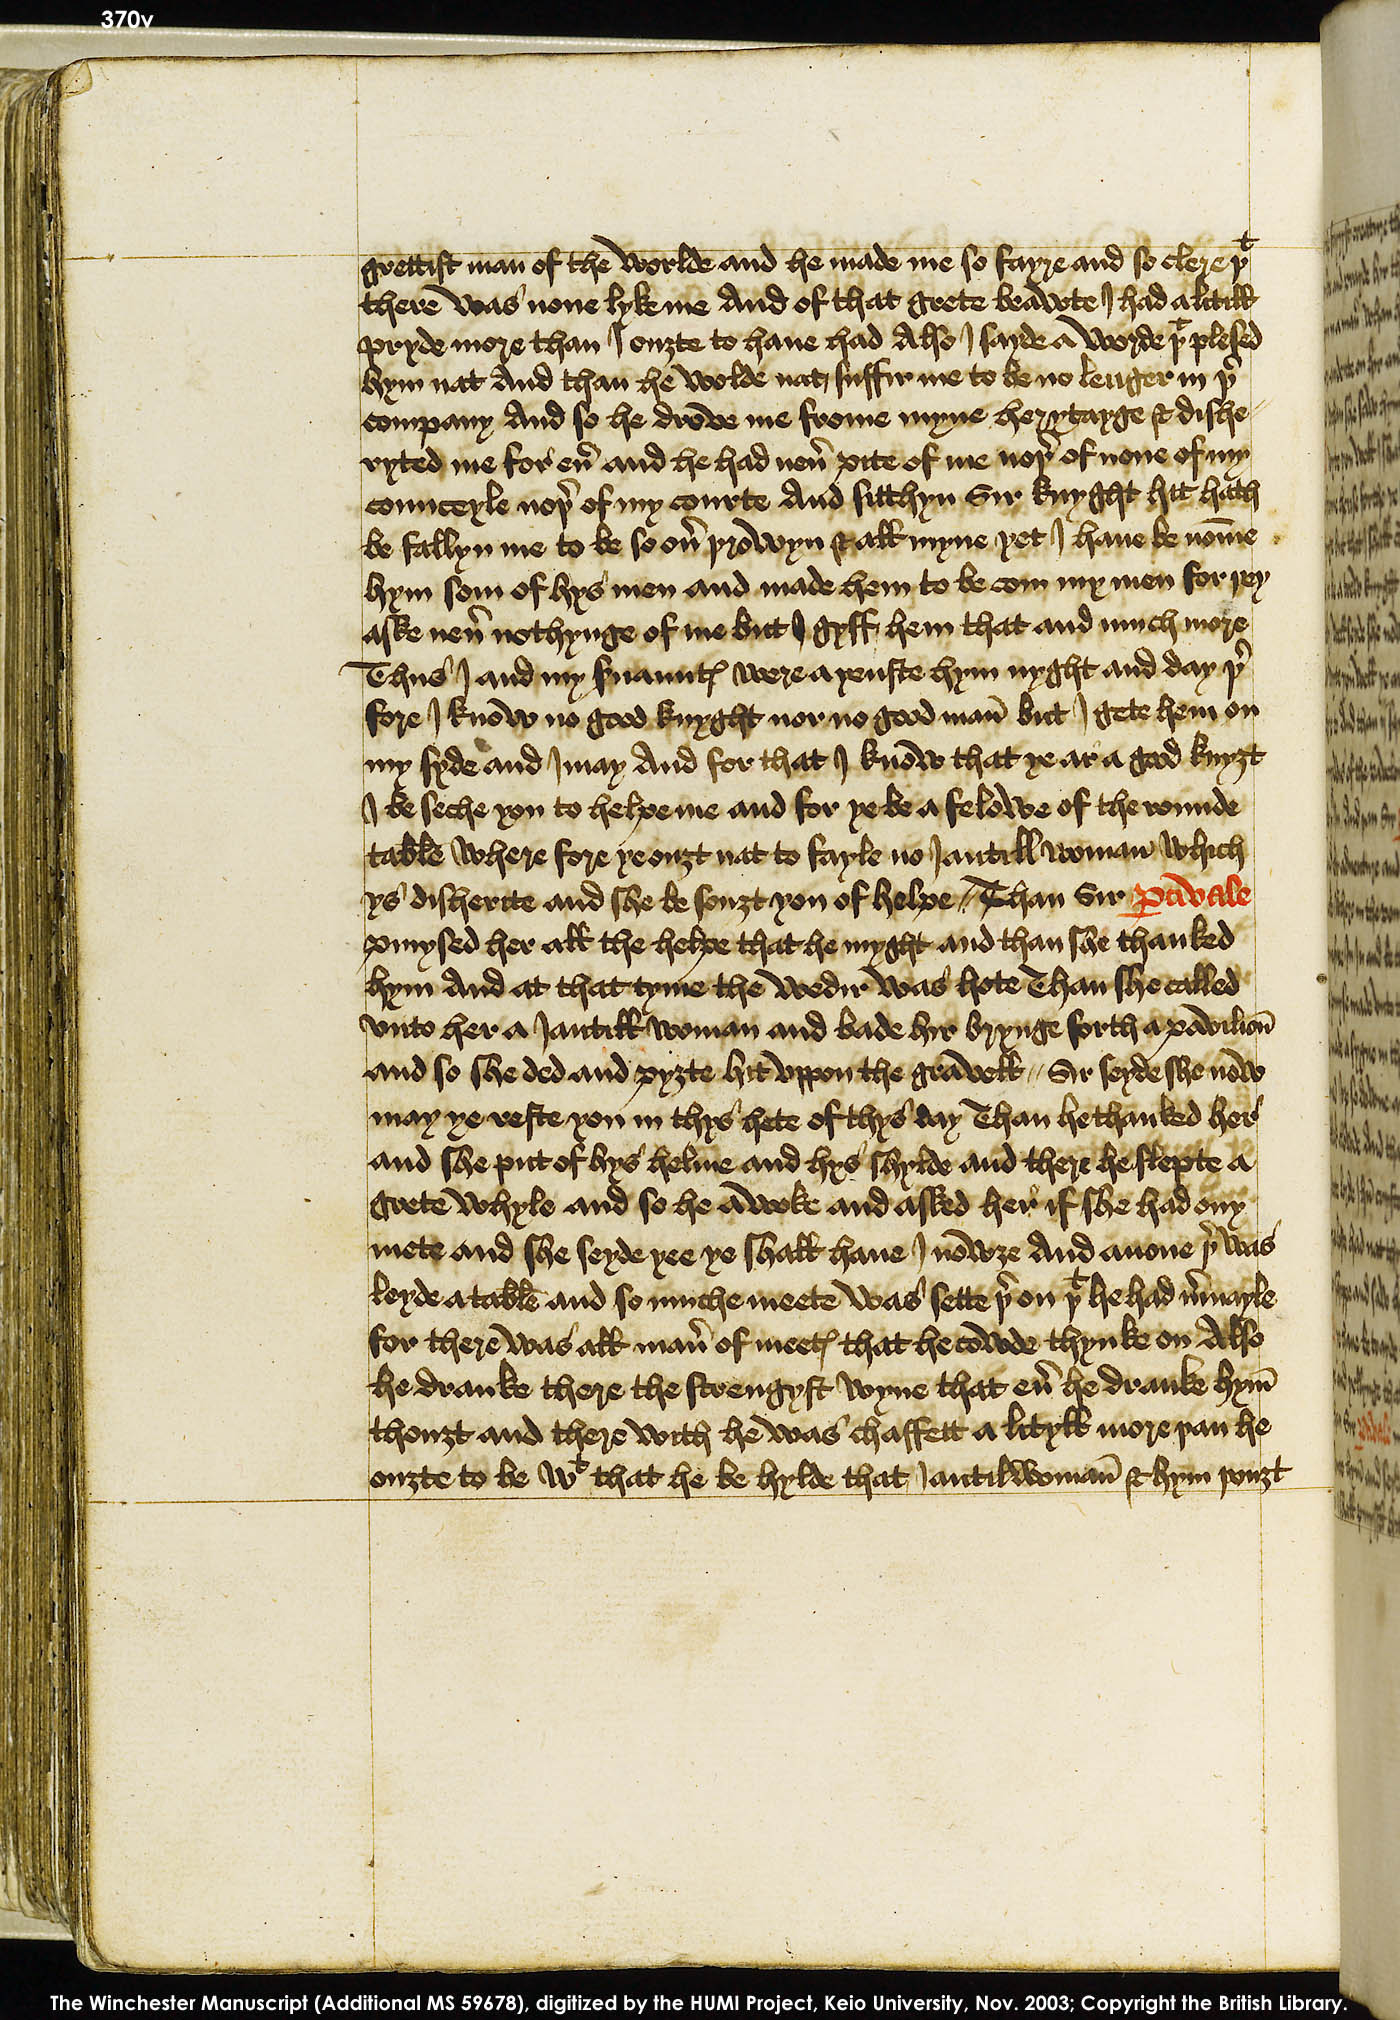 370v
grettist man of the worlde and he made me so fayre and so clere þᵗ
there was none lyke me And of that grete beawte I had a litill
pryde more than I ouȝte to haue had Also I sayde a worde þᵗ plesed
hym nat And than he wolde nat suffir me to be no lenger in þ̉
company And so he drove me frome myne herytayge & dishe
ryted me for eủ and he had neủ pite of me noþ̉ of none of my
counceyle noþ̉ of my courte And sitthyn Sir knyght hit hath
be fallyn me to be so oủ þrowyn & all myne yet I haue be nom̄e
hym som of hys men and made hem to be com my men for þey
aske neủ nothynge of me but I gyff hem that and much more
Thus I and my s̉uauntꝭ were a yenste hym nyght and day þ̉
fore I know no good knyght nor no good man̄ but I gete hem on
my syde and I may And for that I know that ye ar a good knyȝt
I be seche you to helpe me and for ye be a felowe of the rounde
table where fore ye ouȝt nat to fayle no Jantill woman which
ys disherite and she be souȝt you of helpe // Than Sir P̱civale
ꝓmysed her all the helpe that he myght and than she thanked
hym And at that tyme the wedir was hote Than she called
vnto her a Jantill woman and bade hir brynge forth a pavilion̄
and so she ded and pyȝte hit vppon the gravell // Sir seyde she now
may ye reste you in thys hete of thys day Than he thanked her
and she put of hys helme and hys shylde and there he slepte a
grete whyle and so he awoke and asked her if she had ony
mete and she seyde yee ye shall haue I nowȝe And anone þ̉ was
leyde a table and so muche meete was sette þ̉ on þᵗ he had m̉uayle
for there was all man̉ of meetꝭ that he cowde thynke on Also
he dranke there the strengyst wyne that eủ he dranke hym̄
thouȝt and there with he was chaffett a lityll more þan he
ouȝte to be wᵗ that he be hylde that Jantilwoman̄ & hym þouȝt
The Winchester Manuscript (Additional MS 59678), digitized by the HUMI Project, Keio University, Nov. 2003; Copyright the British Library.